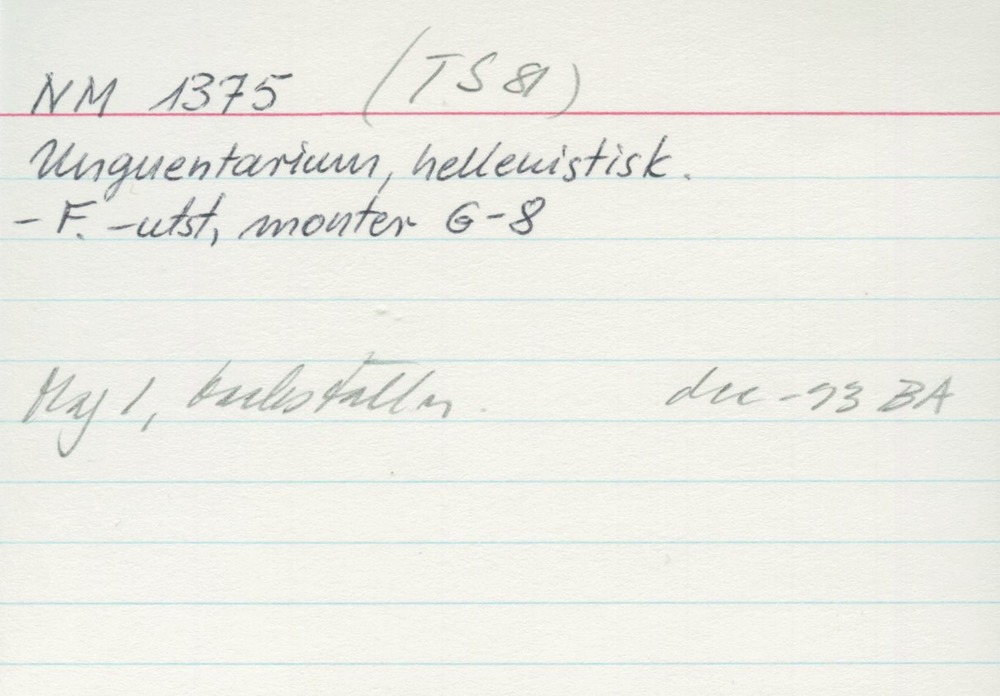 NM 1375 (TS 81)
Unguentarium, hellenistisk.
- F. -utst, monter G-8
Mag 1, dec -93 BA